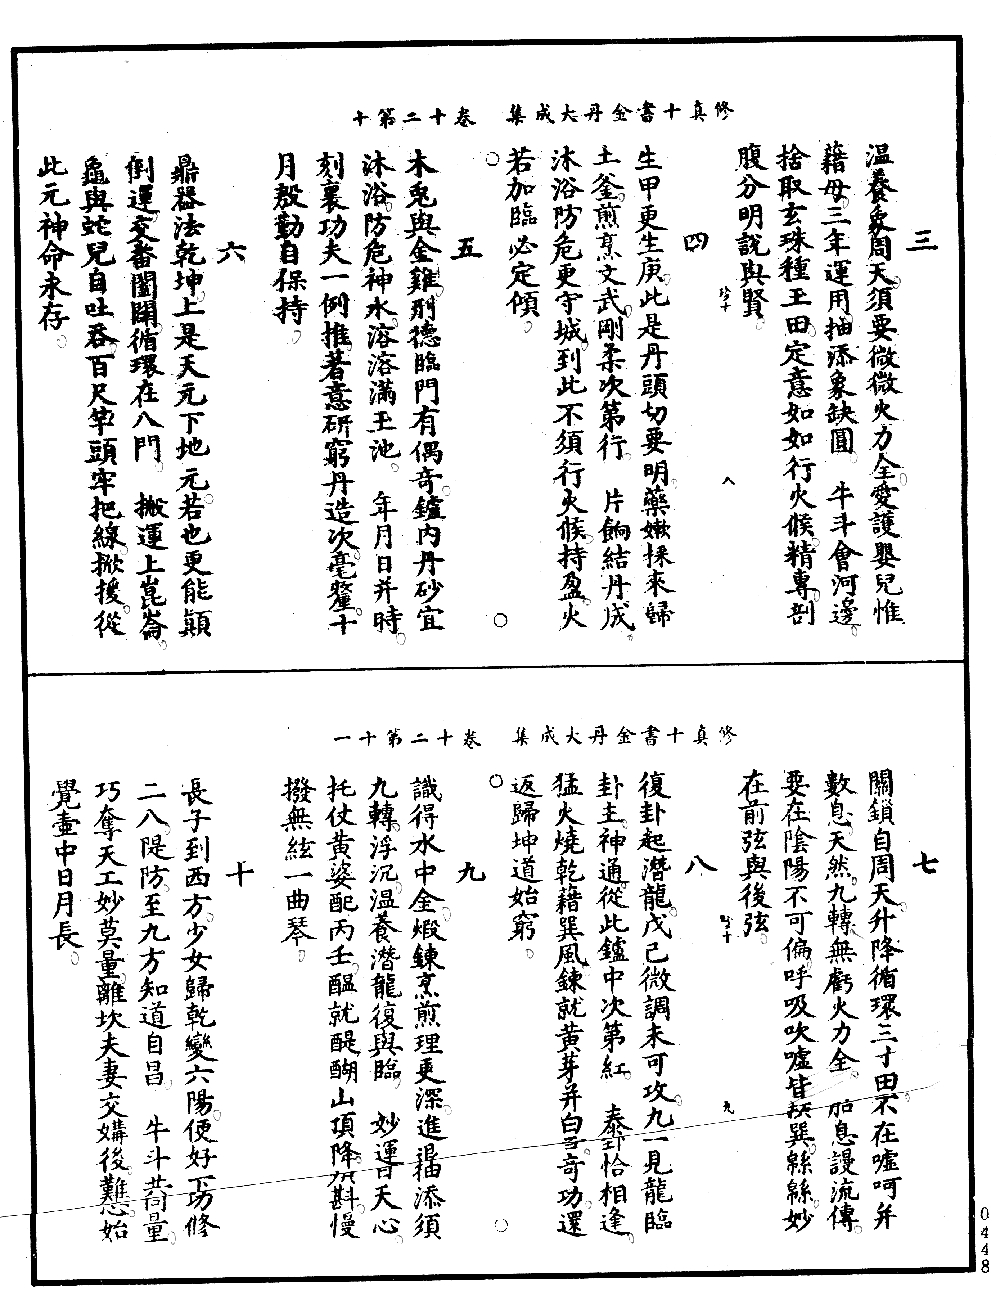 修真十書金丹大成集　卷十二第十
三
溫養象周天須要微微火力全愛護嬰兒惟
藉母三年運用抽添象缺圓　牛斗會河邊
捨取玄珠種玉田定意如如行火候精專剖
腹分明說與賢
四
生甲更生庚此是丹頭切要明藥嫩採來歸
土釜煎烹文武剛柔次第行　片餉結丹成
沐浴防危更守城到此不須行火候持盈火
若加臨必定傾
五
木兎與金雞刑德臨門有偶奇鑪內丹砂宜
沐浴防危神水溶溶滿玉池　年月日并時
刻裏功夫一例推著意研窮丹造次毫釐十
月殷勤自保持
六
鼎器法乾坤上是天元下地元若也更能顛
倒運交番闔闢循環在八門　搬運上崑崙
龜與蛇兒自吐吞百尺竿頭牢把線掀援從
此元神命永存
修真十書金丹大成集　卷十二第十一
七
關鎖自周天升降循環三寸田不在噓呵并
數息天然九轉無虧火力全　胎息謾流傳
要在陰陽不可偏呼吸吹噓皆接巽綿綿妙
在前弦與後弦
八
復卦起潛龍戊己微調未可攻九一見龍臨
卦主神通從此鑪中次第紅　泰卦恰相逢
猛火燒乾藉巽風鍊就黃芽并白雪奇功還
返歸坤道始窮
九
識得水中金煅鍊烹煎理更深進退抽添須
九轉浮沉溫養潛龍復與臨　妙運用天心
托仗黃婆配丙壬醞就醍醐山頂降所斟慢
撥無絃一曲琴
十
長子到西方少女歸乾變六陽便好下功修
二八隄防至九方知道自昌　牛斗共商量
巧奪天工妙莫量離坎夫妻交媾後難忘始
覺壺中日月長
0448